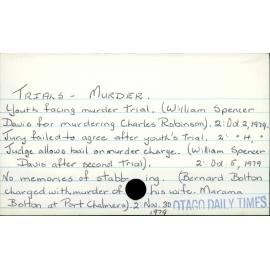 TRIALS - MURDER.
Youth facing murder trial. (William Spencer
Davis for murdering Charles Robinson). 2: Oct 2, 1979.
Jury failed to agree after youth's trial. 2: " 4, "
Judge allows bail on murder charge. (William Spencer
Davis after second trial). 2: Oct 5, 1979
No memories of stabbing. (Bernard Bolton
charged with murder of his wife. Marama
Bolton at Port Chalmers). 2: Nov. 30
1979
OTAGO DAILY TIMES